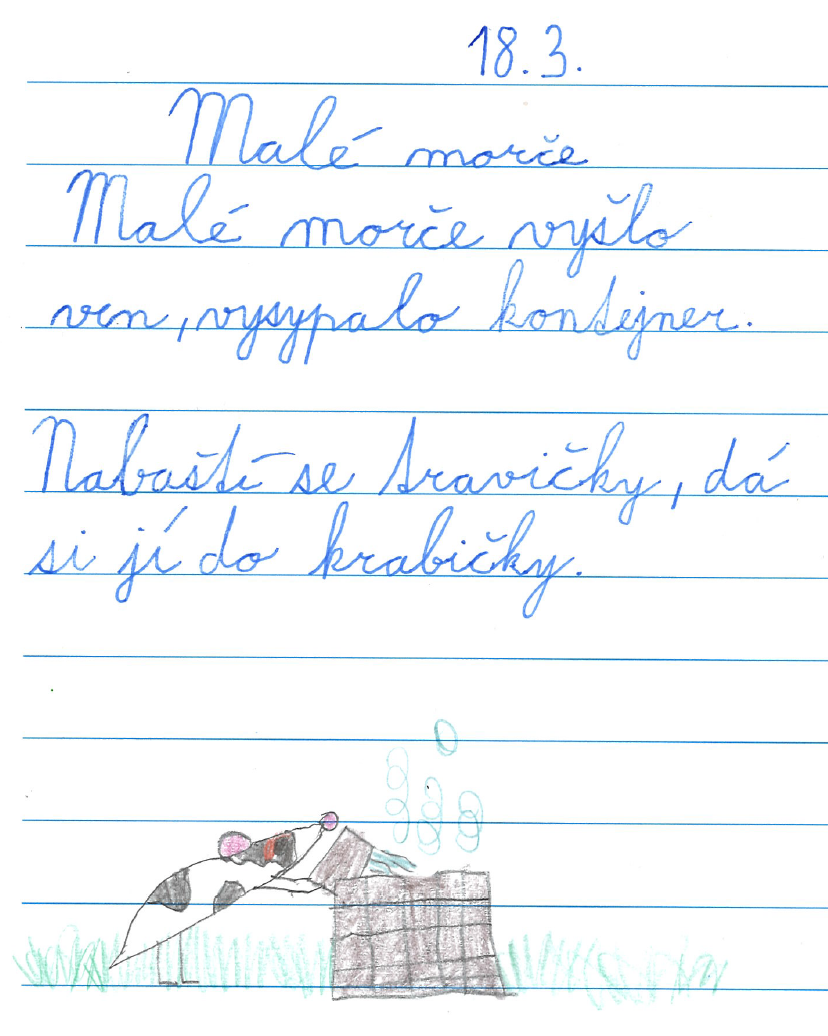 18.3.
Malé morče
Malé morče vyšlo
ven, vysypalo kontejner.
Nabaští se travičky, dá
si jí do krabičky.